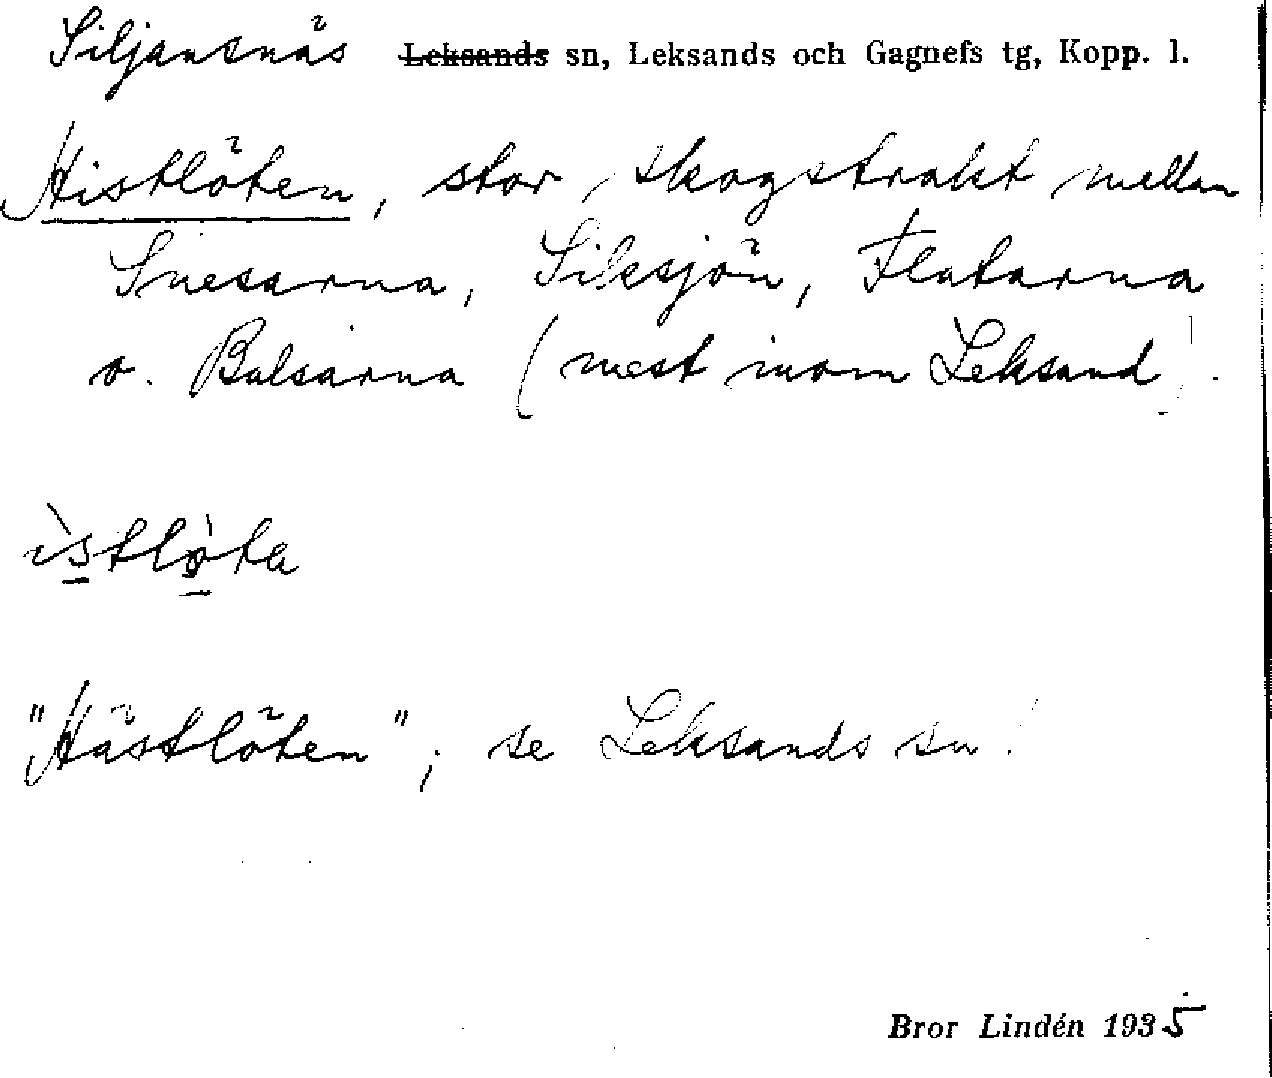 Siljansnäs Leksands sn, Leksands och Gagnefs tg, Kopp. l.
Histlöten, stor skogstrakt mellan
Snesarna, Siksjön, Flatarna
o. Balsarna (mest inom Leksand).
ìstlòta
"Hästlöten", se Leksands sn!
Bror Lindén 1935